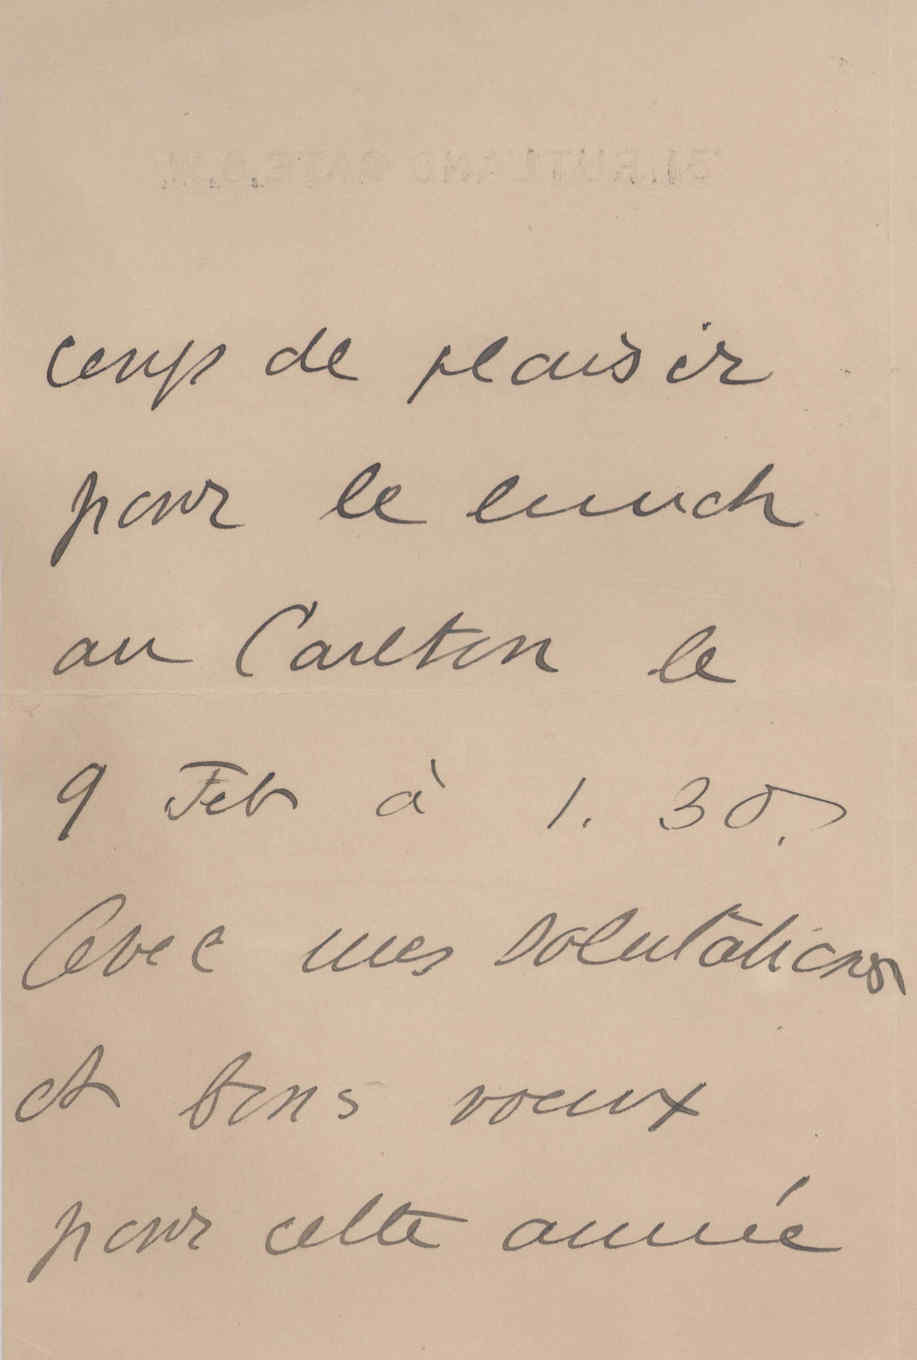 31, RUTLAND GATE, S.W.
coup de plaisir
pour le lunch
au Carlton le
9 Feb à 1. 30.
Avec mes salutations
et bons voeux
pour cette année